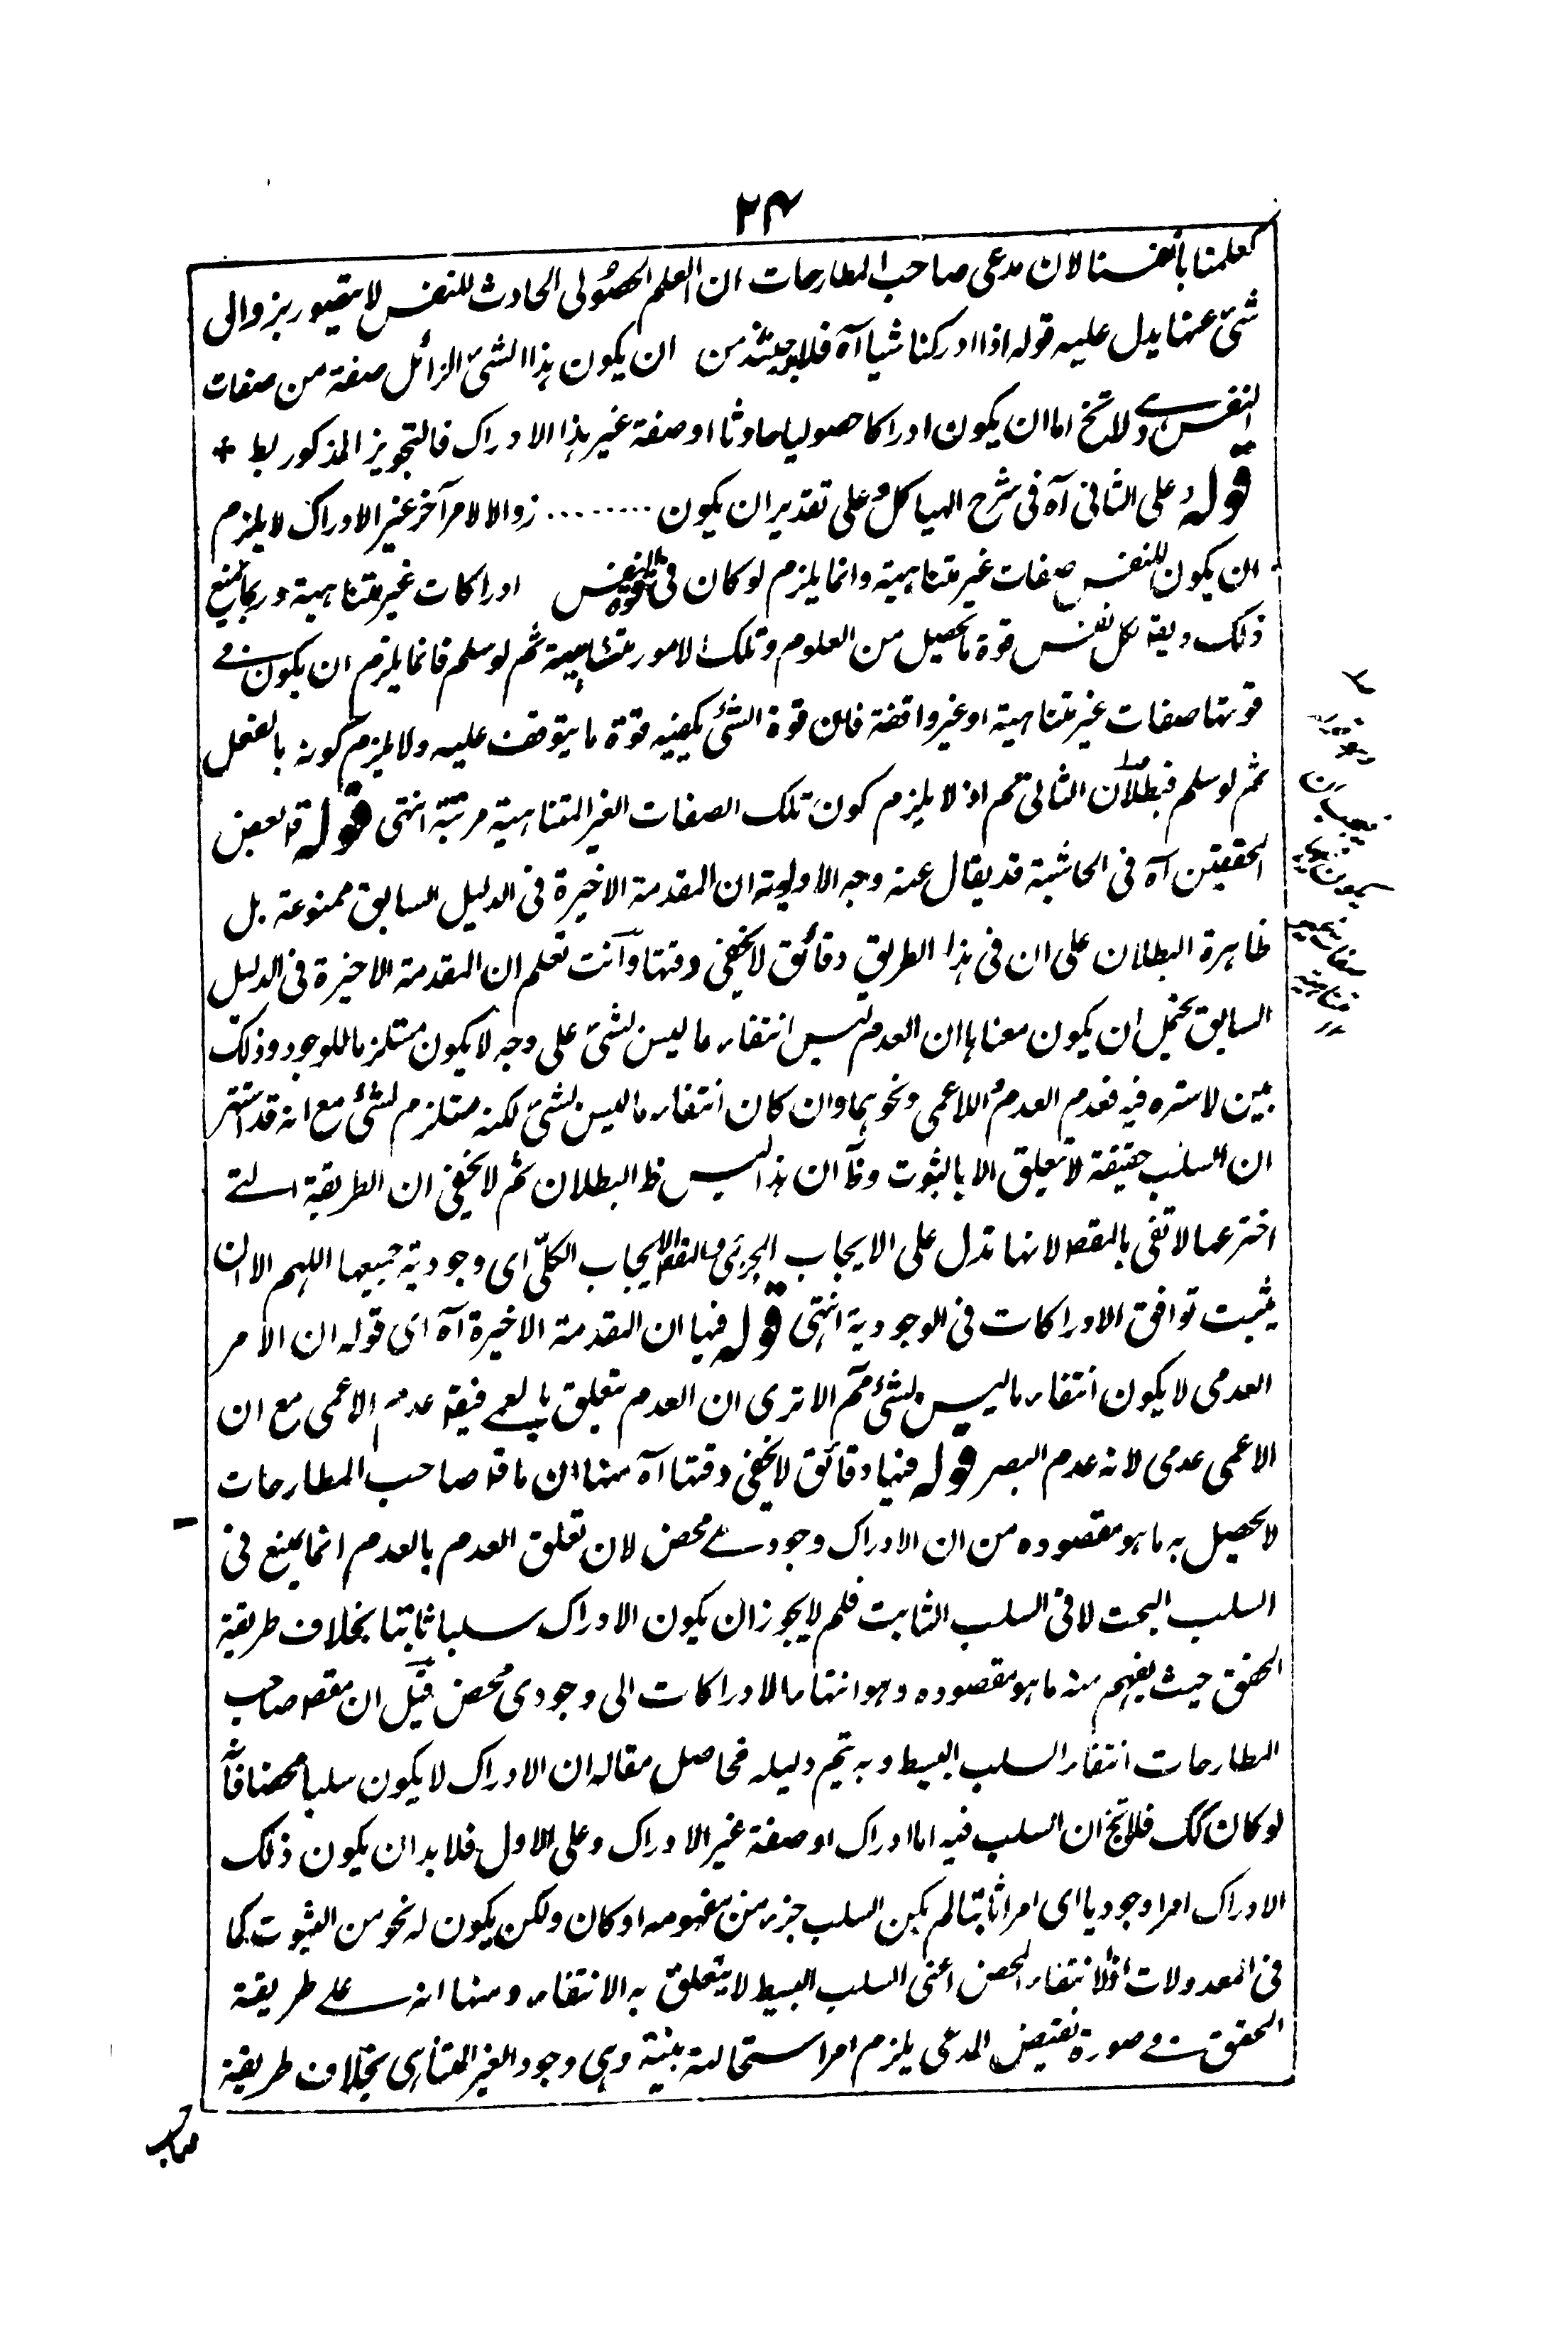 ۲۴
كعلمنا بأنفسنا لان مدعى صاحب المطارحات ان العلم الحصولى الحادث للنفس لا يتصور بزوالى
شئ عنها يدل عليه قوله اذا ادركنا شيا آه فلابد حينئذ من ان يكون هذا الشئ الزائل صفة من صفات
النفس ولا يخ اما ان يكون ادراكا حصوليا حادثا او صفة غير هذا الادراك فالتجويز المذكور بط +
قوله وعلى الثانى آه فى شرح الهياكل وعلى تقدير ان يكون ........ زوالا لامر آخر غير الادراك لا يلزم
ان يكون للنفس صفات غير متناهية وانما يلزم لو كان فى قوة النفس ادراكات غير متناهية وربما يمنع
ذلك ويقه لكل نفس قوة تحصيل من العلوم وتلك الامور متناهية ثم لو سلم فانما يلزم ان يكون فى
قوتها صفات غير متناهية او غير واقفة فان قوة الشئ يكفيه قوة ما يتوقف عليه ولا يلزم كونه بالفعل
ثم لو سلم فبطلان الثانى مم اذ لا يلزم كون تلك الصفات الغير المتناهية مرتبة انتهى قوله قه بعض
المحققين آه فى الحاشية قد يقال عنه وجه الاولوية ان المقدمة الاخيرة فى الدليل السابق ممنوعة بل
ظاهرة البطلان على ان فى هذا الطريق دقائق لا يخفى دقتها وانت تعلم ان المقدمة الاخيرة فى الدليل
السابق يحتمل ان يكون معناها ان العدم ليس انتفاء ما ليس بشئ على وجه لا يكون مستلزما للوجود وذلك
بين لا سترة فيه فعدم العدم واللاعمى ونحوهما وان كان انتفاء ما ليس بشئ لكنه مستلزم لشئ مع انه قد اشتهر
ان السلب حقيقة لا تتعلق الا بالثبوت وظ ان هذا ليس ظ البطلان ثم لا يخفى ان الطريقة التے
اخترعها لا تفى بالمقصد لانها تدل على الايجاب الجزئى والمقصد الايجاب الكلّى اى وجودية جميعها اللهم الا ان
يثبت توافق الادراكات فى الوجودية انتهى قوله فيها ان المقدمة الاخيرة آه اى قوله ان الامر
العدمى لا يكون انتفاء ما ليس بشئ مم الا ترى ان العدم يتعلق بالعمے فيقه عدم الاعمى مع ان
الاعمى عدمى لانه عدم البصر قوله فيها دقائق لا يخفى دقتها آه منها ان ما قه صاحب المطارحات
لا يحصل به ما هو مقصوده من ان الادراك وجودے محض لان تعلق العدم بالعدم انما يمنع فى
السلب البحت لا فى السلب الثابت فلم لا يجوز ان يكون الادراك سلبا ثابتا بخلاف طريقة
المحقق حيث يفهم منه ما هو مقصوده وهو انتهاء الادراكات الى وجودى محض قيل ان مقصد صاحب
المطارحات انتفاء السلب البسيط وبه يتم دليله فحاصل مقاله ان الادراك لا يكون سلبا محضا فانه
لو كان كك فلا يخ ان السلب فيه اما ادراك او صفة غير الادراك وعلى الاول فلا بد ان يكون ذلك
الادراك امرا وجوديا اى امرا ثابتا لم يكن السلب جزء من مفهومه او كان ولكن يكون له نحو من الثبوت كما
فى المعدولات اذ الانتفاء المحض اعنى السلب البسيط لا يتعلق به الانتفاء ومنها انه علے طريقة
المحقق فى صورة نقيض المدعى يلزم امر استحالته بينة وهى وجود الغير المتناهى بخلاف طريقة
صاحب